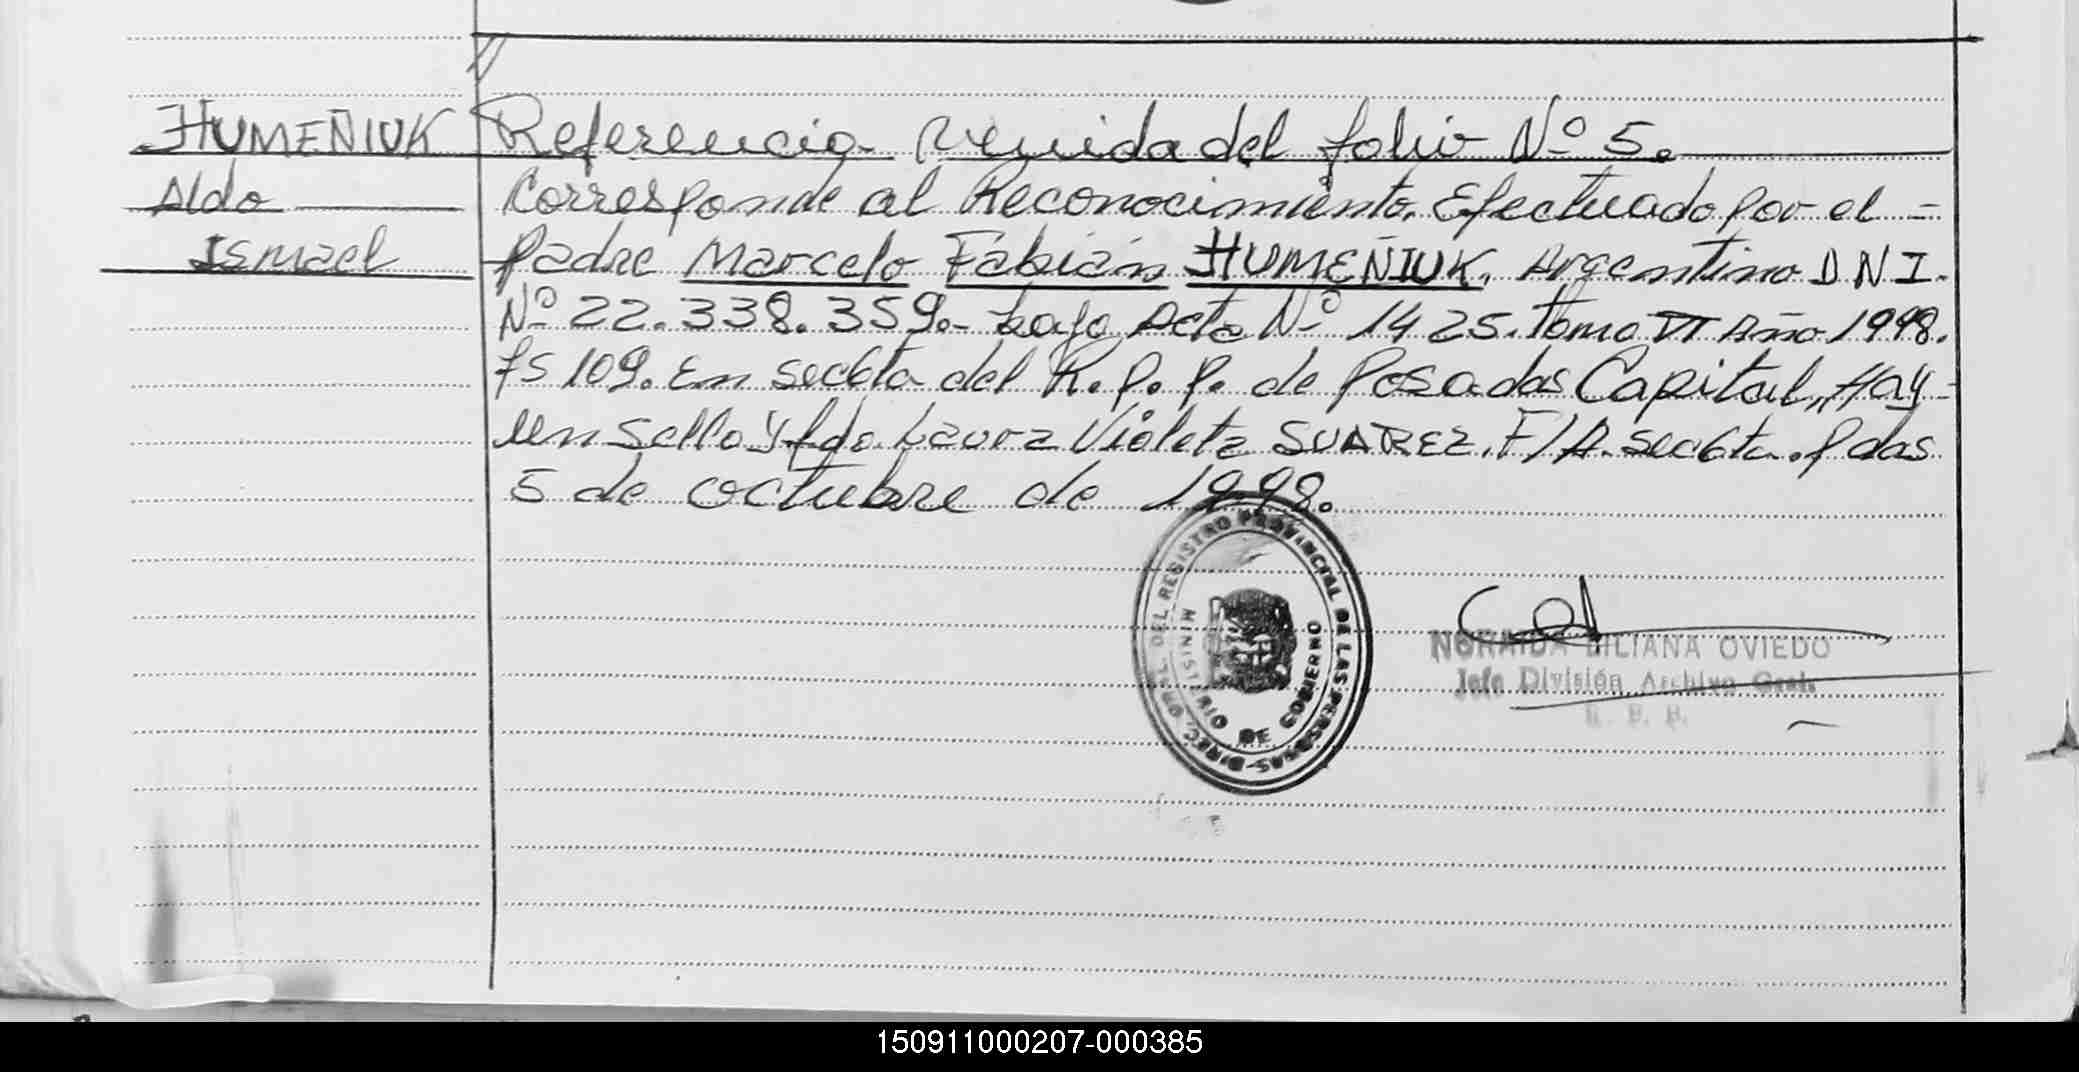 HUMEÑIUK Referencia Venida del folio Nº 5.
Aldo Corresponde al Reconocimiento, Efectuado por el =
Ismael padre Marcelo Fabián HUMEÑIUK, Argentino D N I.
Nº 22.338.359.- bajo Acta Nº 1425. tomo VI Año 1998.
fs 109. En secc 6ta del R. P. P. de Posadas Capital,, Hay-
un sello y fdo Laura Violeta SUAREZ. F/A. secc 6ta. Pdas
5 de octubre de 1998.
DIREC. GRAL. DEL REGISTRO PROVINCIAL DE LAS PERSONAS-
MINISTERIO DE GOBIERNO
NORAIDA LILIANA OVIEDO
Jefe División Archivo Gral.
150911000207-000385